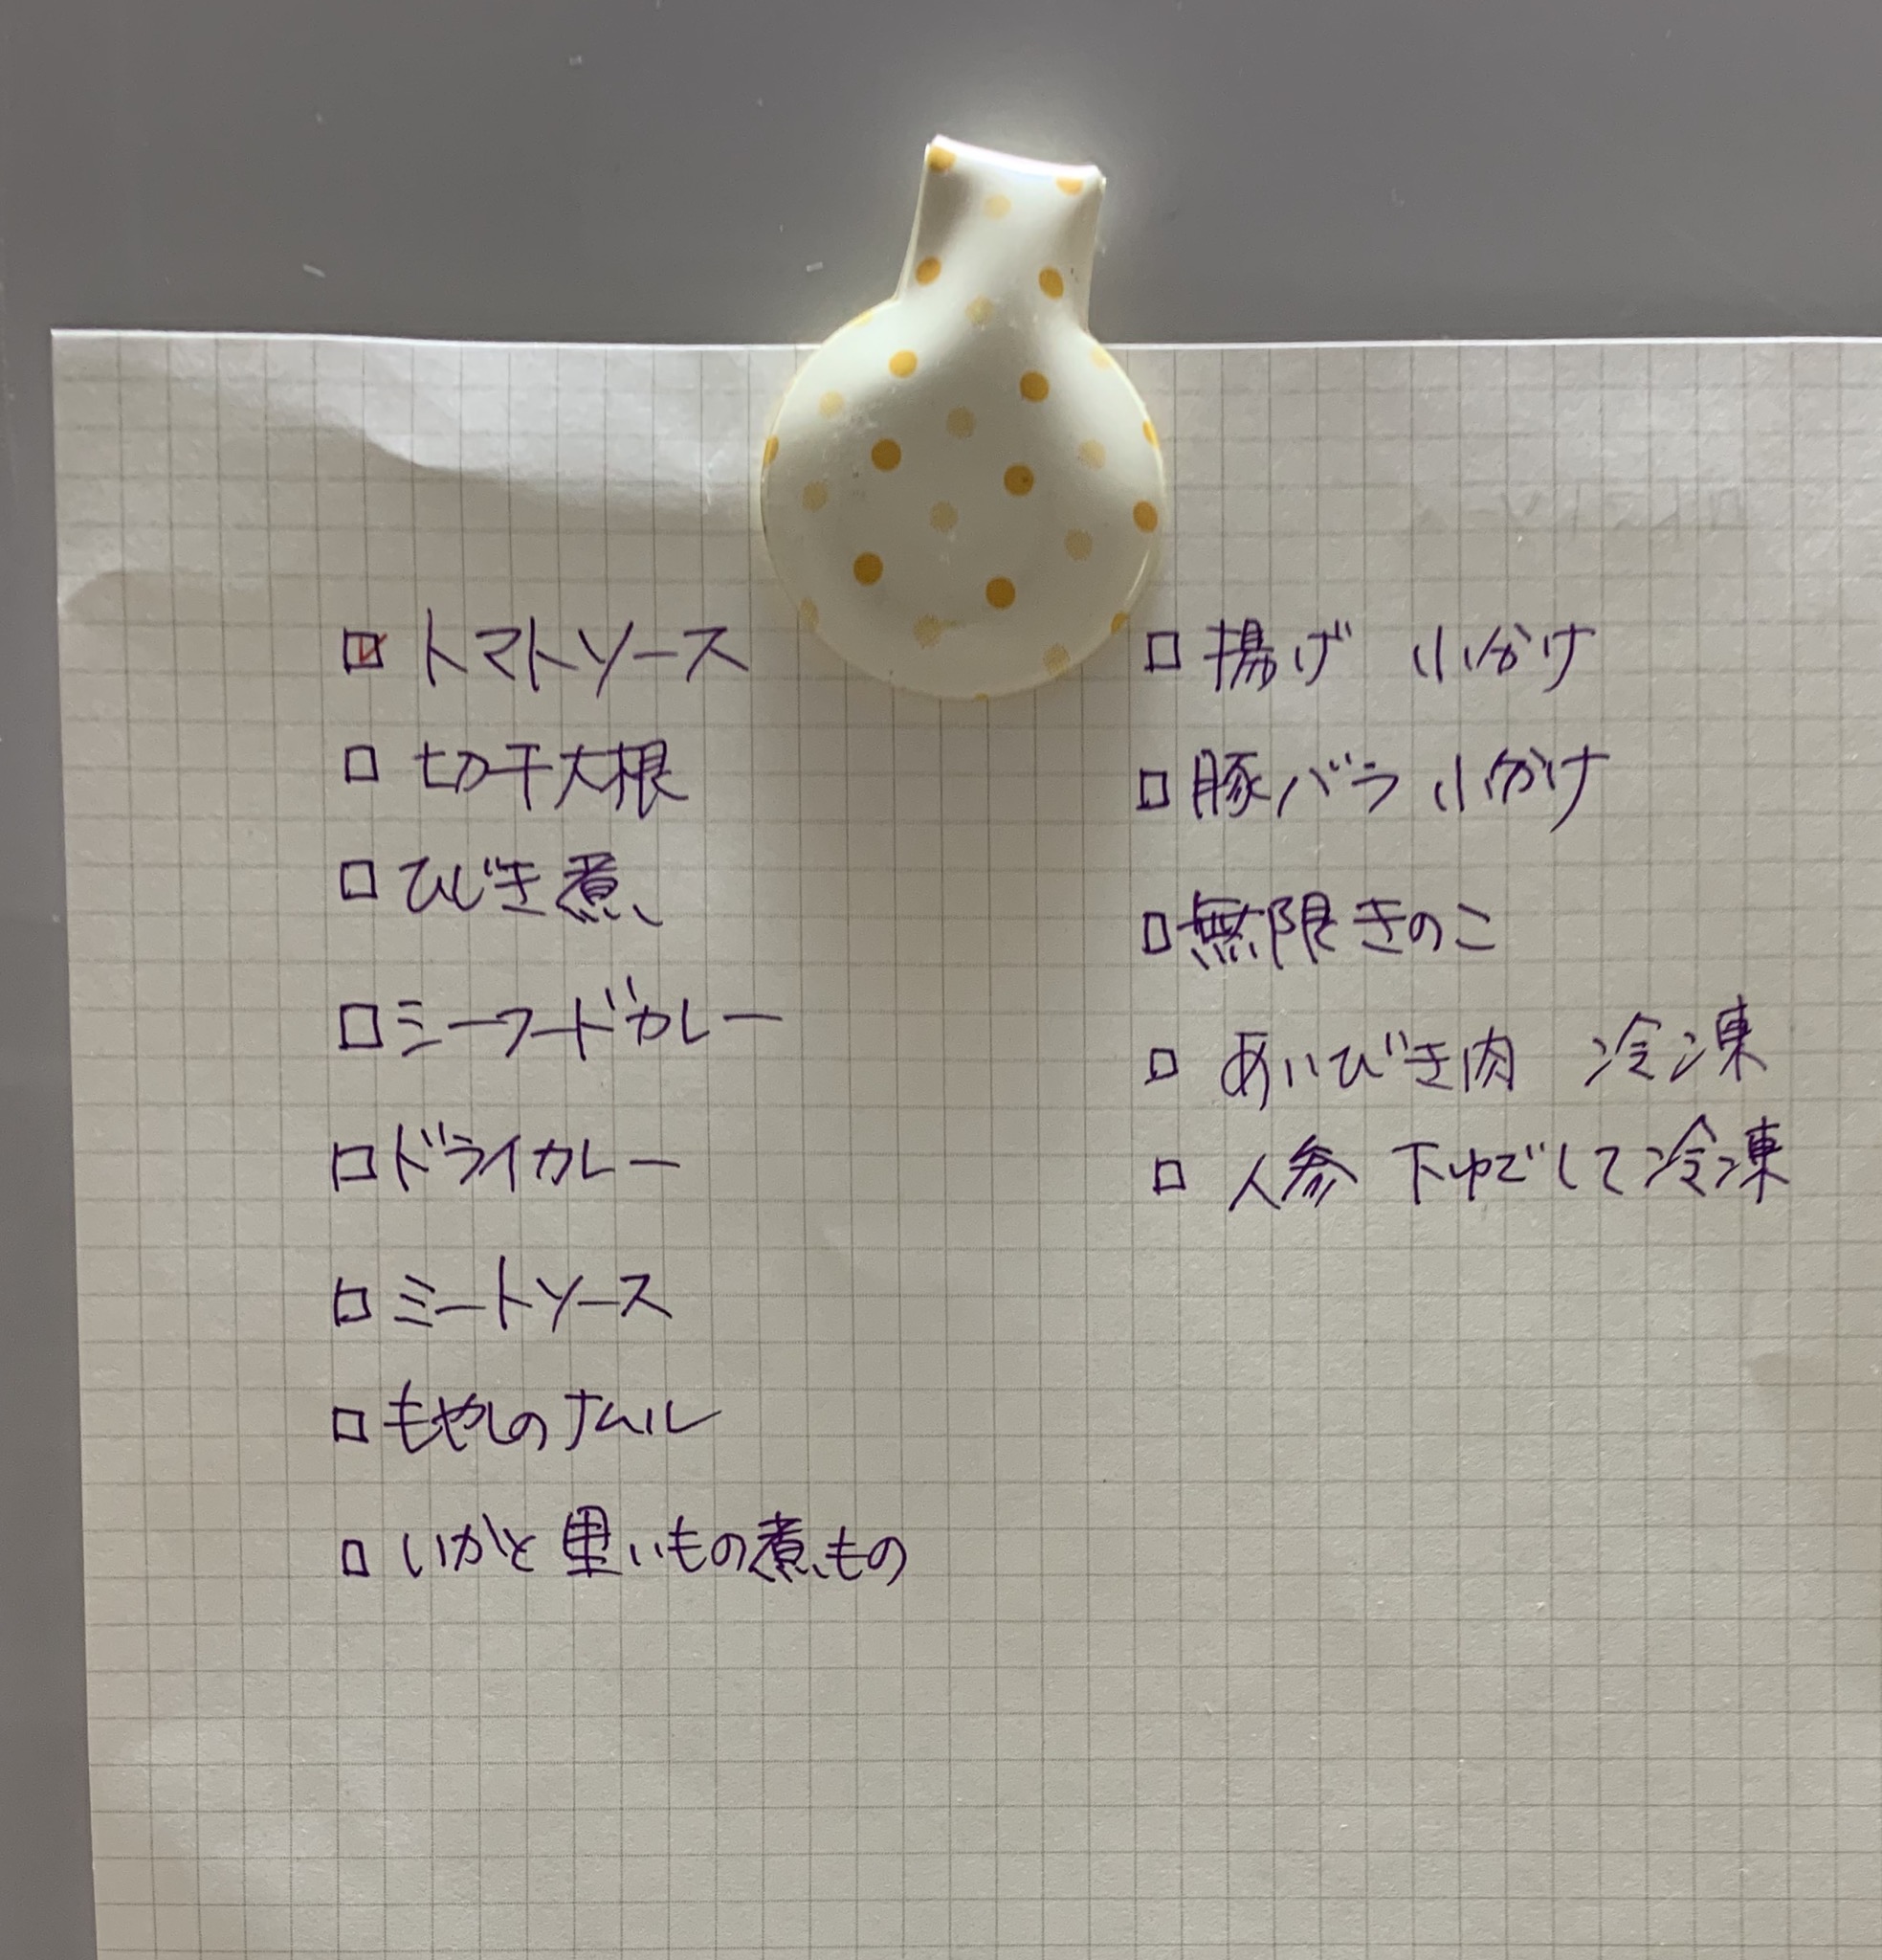 ☑ トマトソース
□ 切干大根
□ ひじき煮
□ シーフードカレー
□ ドライカレー
□ ミートソース
□ もやしのナムル
□ いかと里いもの煮もの
□ 揚げ 小分け
□ 豚バラ 小分け
□ 無限きのこ
□ あいびき肉 冷凍
□ 人参 下ゆでして冷凍